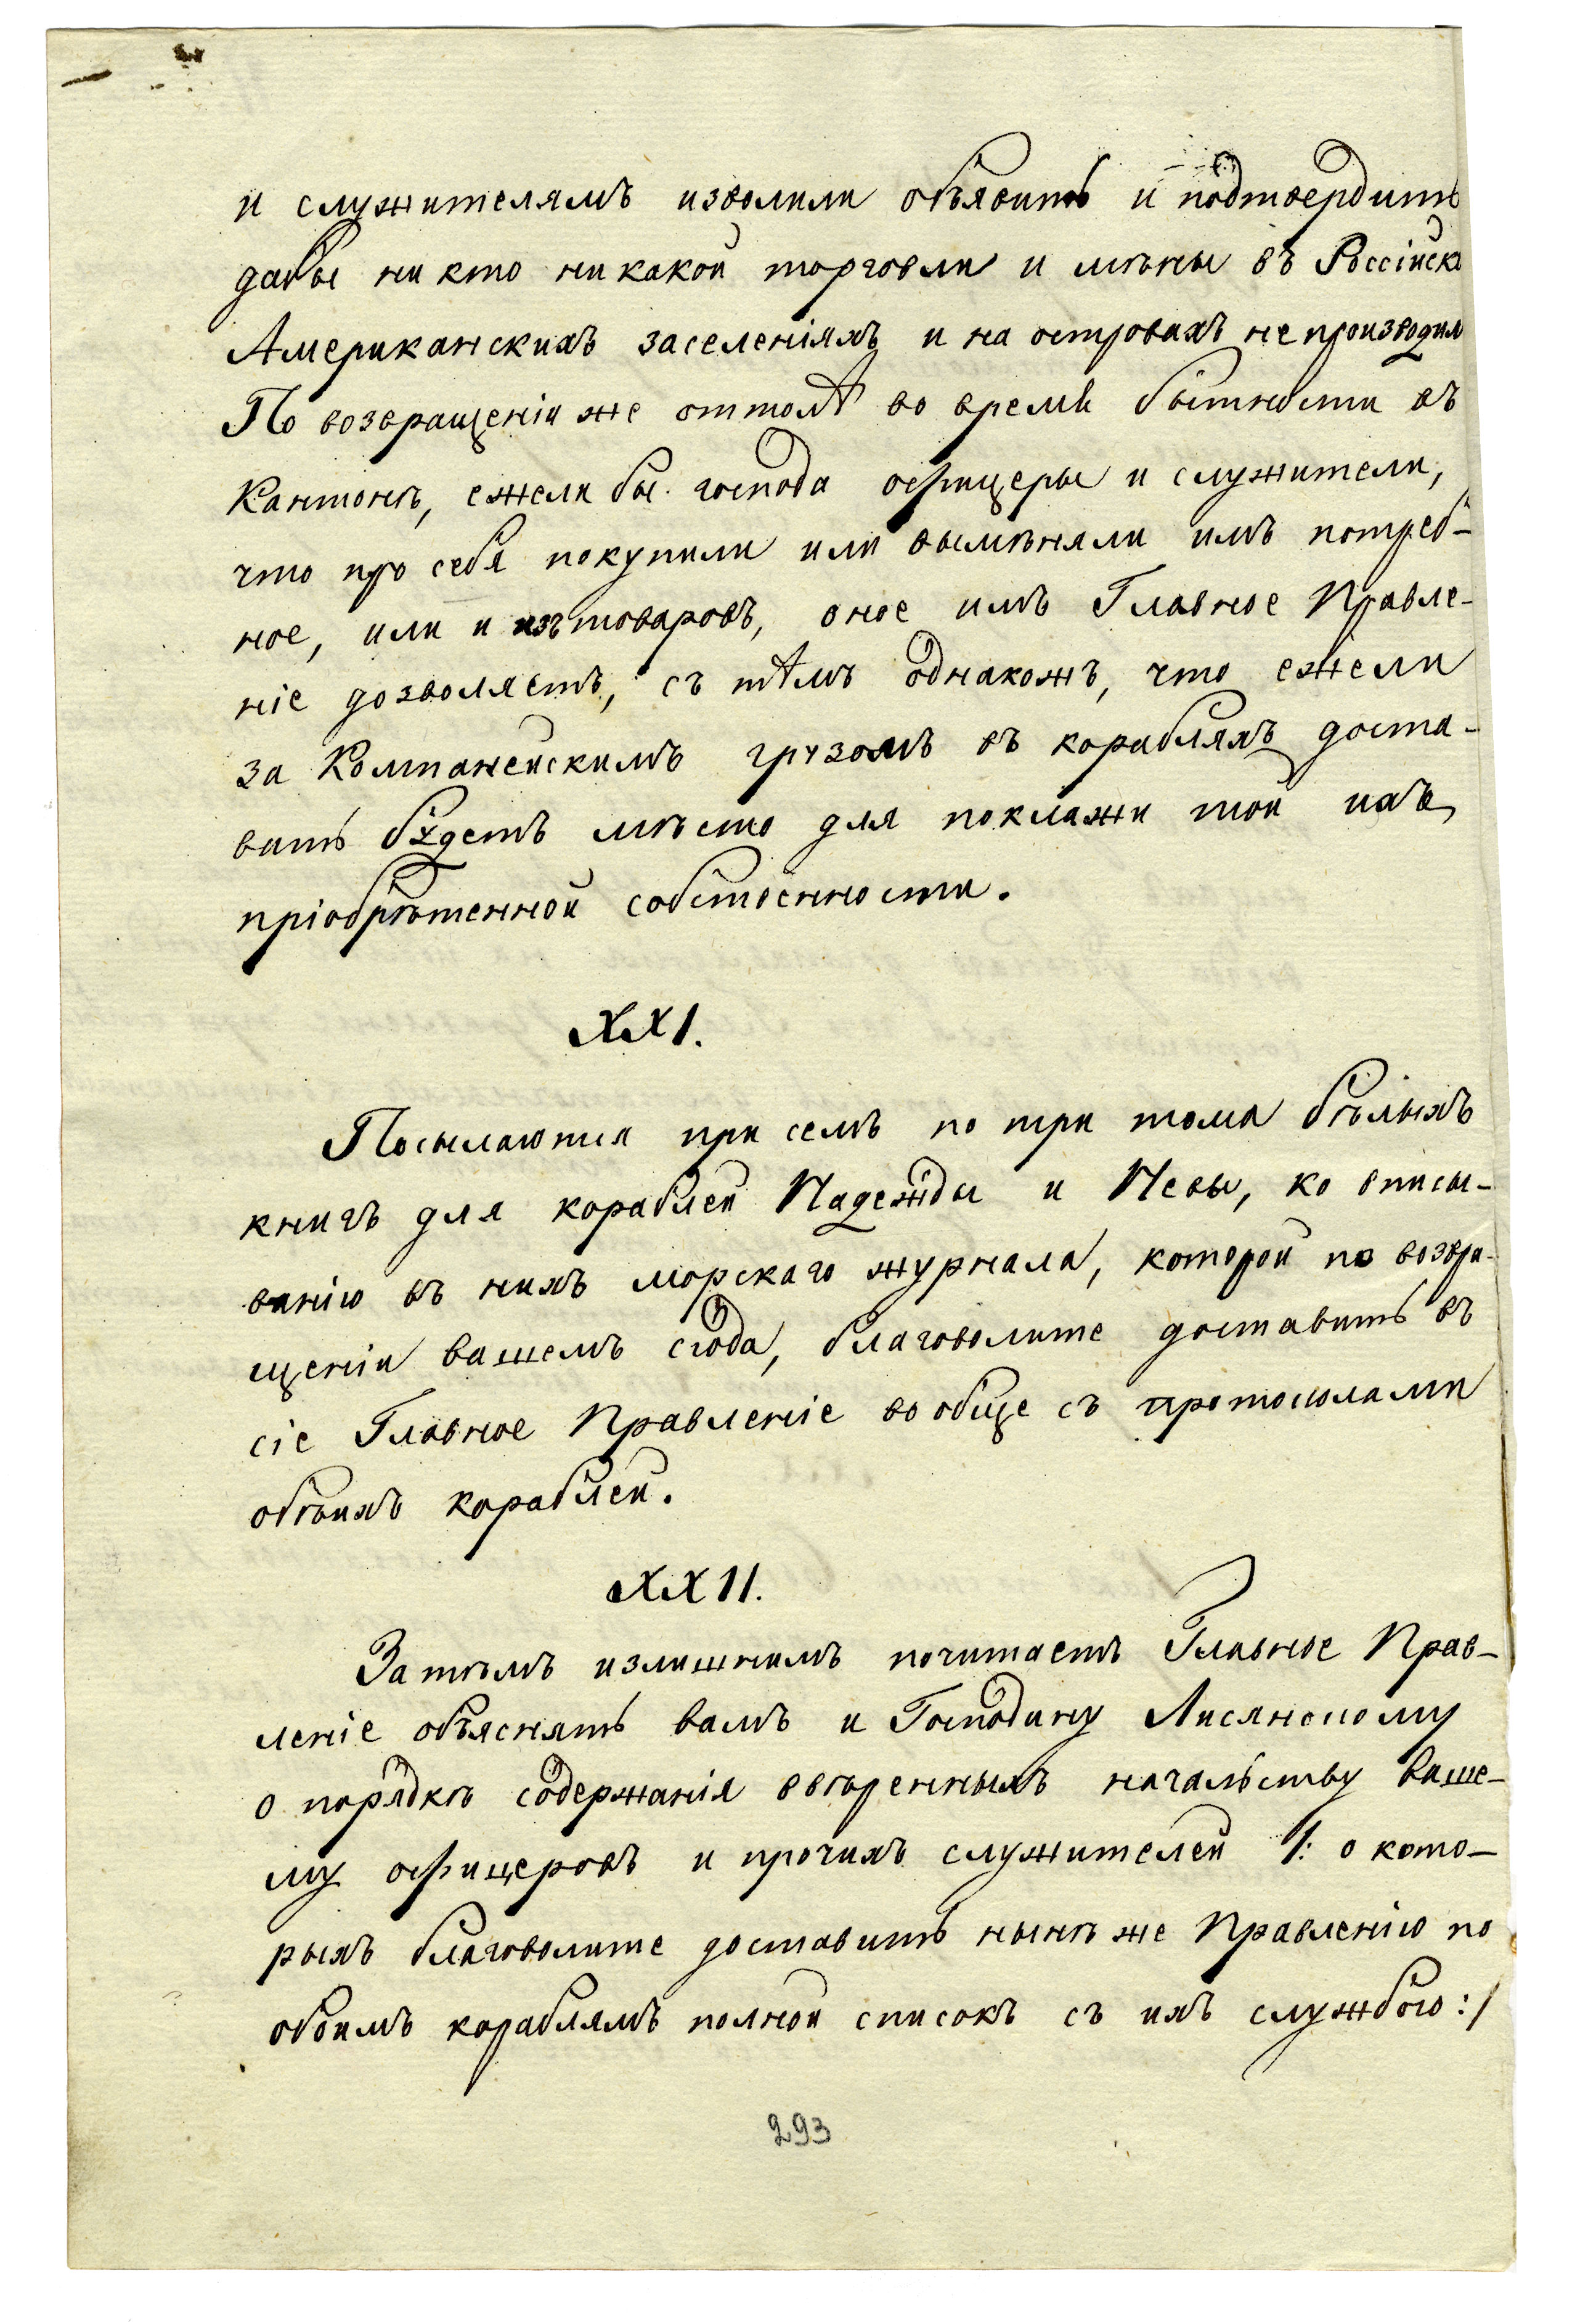 и служителямъ изволили объявить и подтвердить
дабы ни кто ни какой торговли и мѣны въ Россійск
Американскихъ заселеніяхъ и на островахъ не производил
По возвращеніи же оттолѣ во время бытности въ
Кантонѣ, ежели бы господа офицеры и служители,
что про себя покупили или вымѣняли имъ потреб-
ное, или и изъ товаровъ, оное имъ Главное Правле-
ніе дозволяетъ, съ тѣмъ однакожъ, что ежели
за Компанейскимъ грузомъ въ корабляхъ доста-
вать будетъ мѣсто для поклажи той ихъ
пріобрѣтенной собственности.
XXI.
Посылаются при семъ по три тома бѣлыхъ
книгъ для кораблей Надежды и Невы, ко вписы-
ванію въ нихъ морскаго журнала, которой по возвра-
щеніи вашемъ сюда, благоволите доставить въ
сіе Главное Правленіе вообще съ протоколами
обѣихъ кораблей.
XXII.
Затѣмъ излишнимъ почитаетъ Главное Прав-
леніе объяснять вамъ и Господину Лисянскому
о порядкѣ содержанія ввѣренныхъ начальству ваше-
му офицеровъ и прочихъ служителей /: о кото-
рыхъ благоволите доставить нынѣ же Правленію по
обоимъ кораблямъ полной списокъ съ ихъ службою :/
293